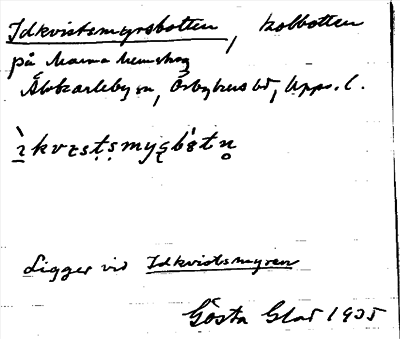 Idkvistsmyrsbotten, kolbotten
på Marma hemskog
Älvkarleby sn, Örbyhus hd, Upps. l.
ı̀kvɪstsmyrsbòtn̥
Ligger vid Idkvistsmyren
Gösta Glad 1935